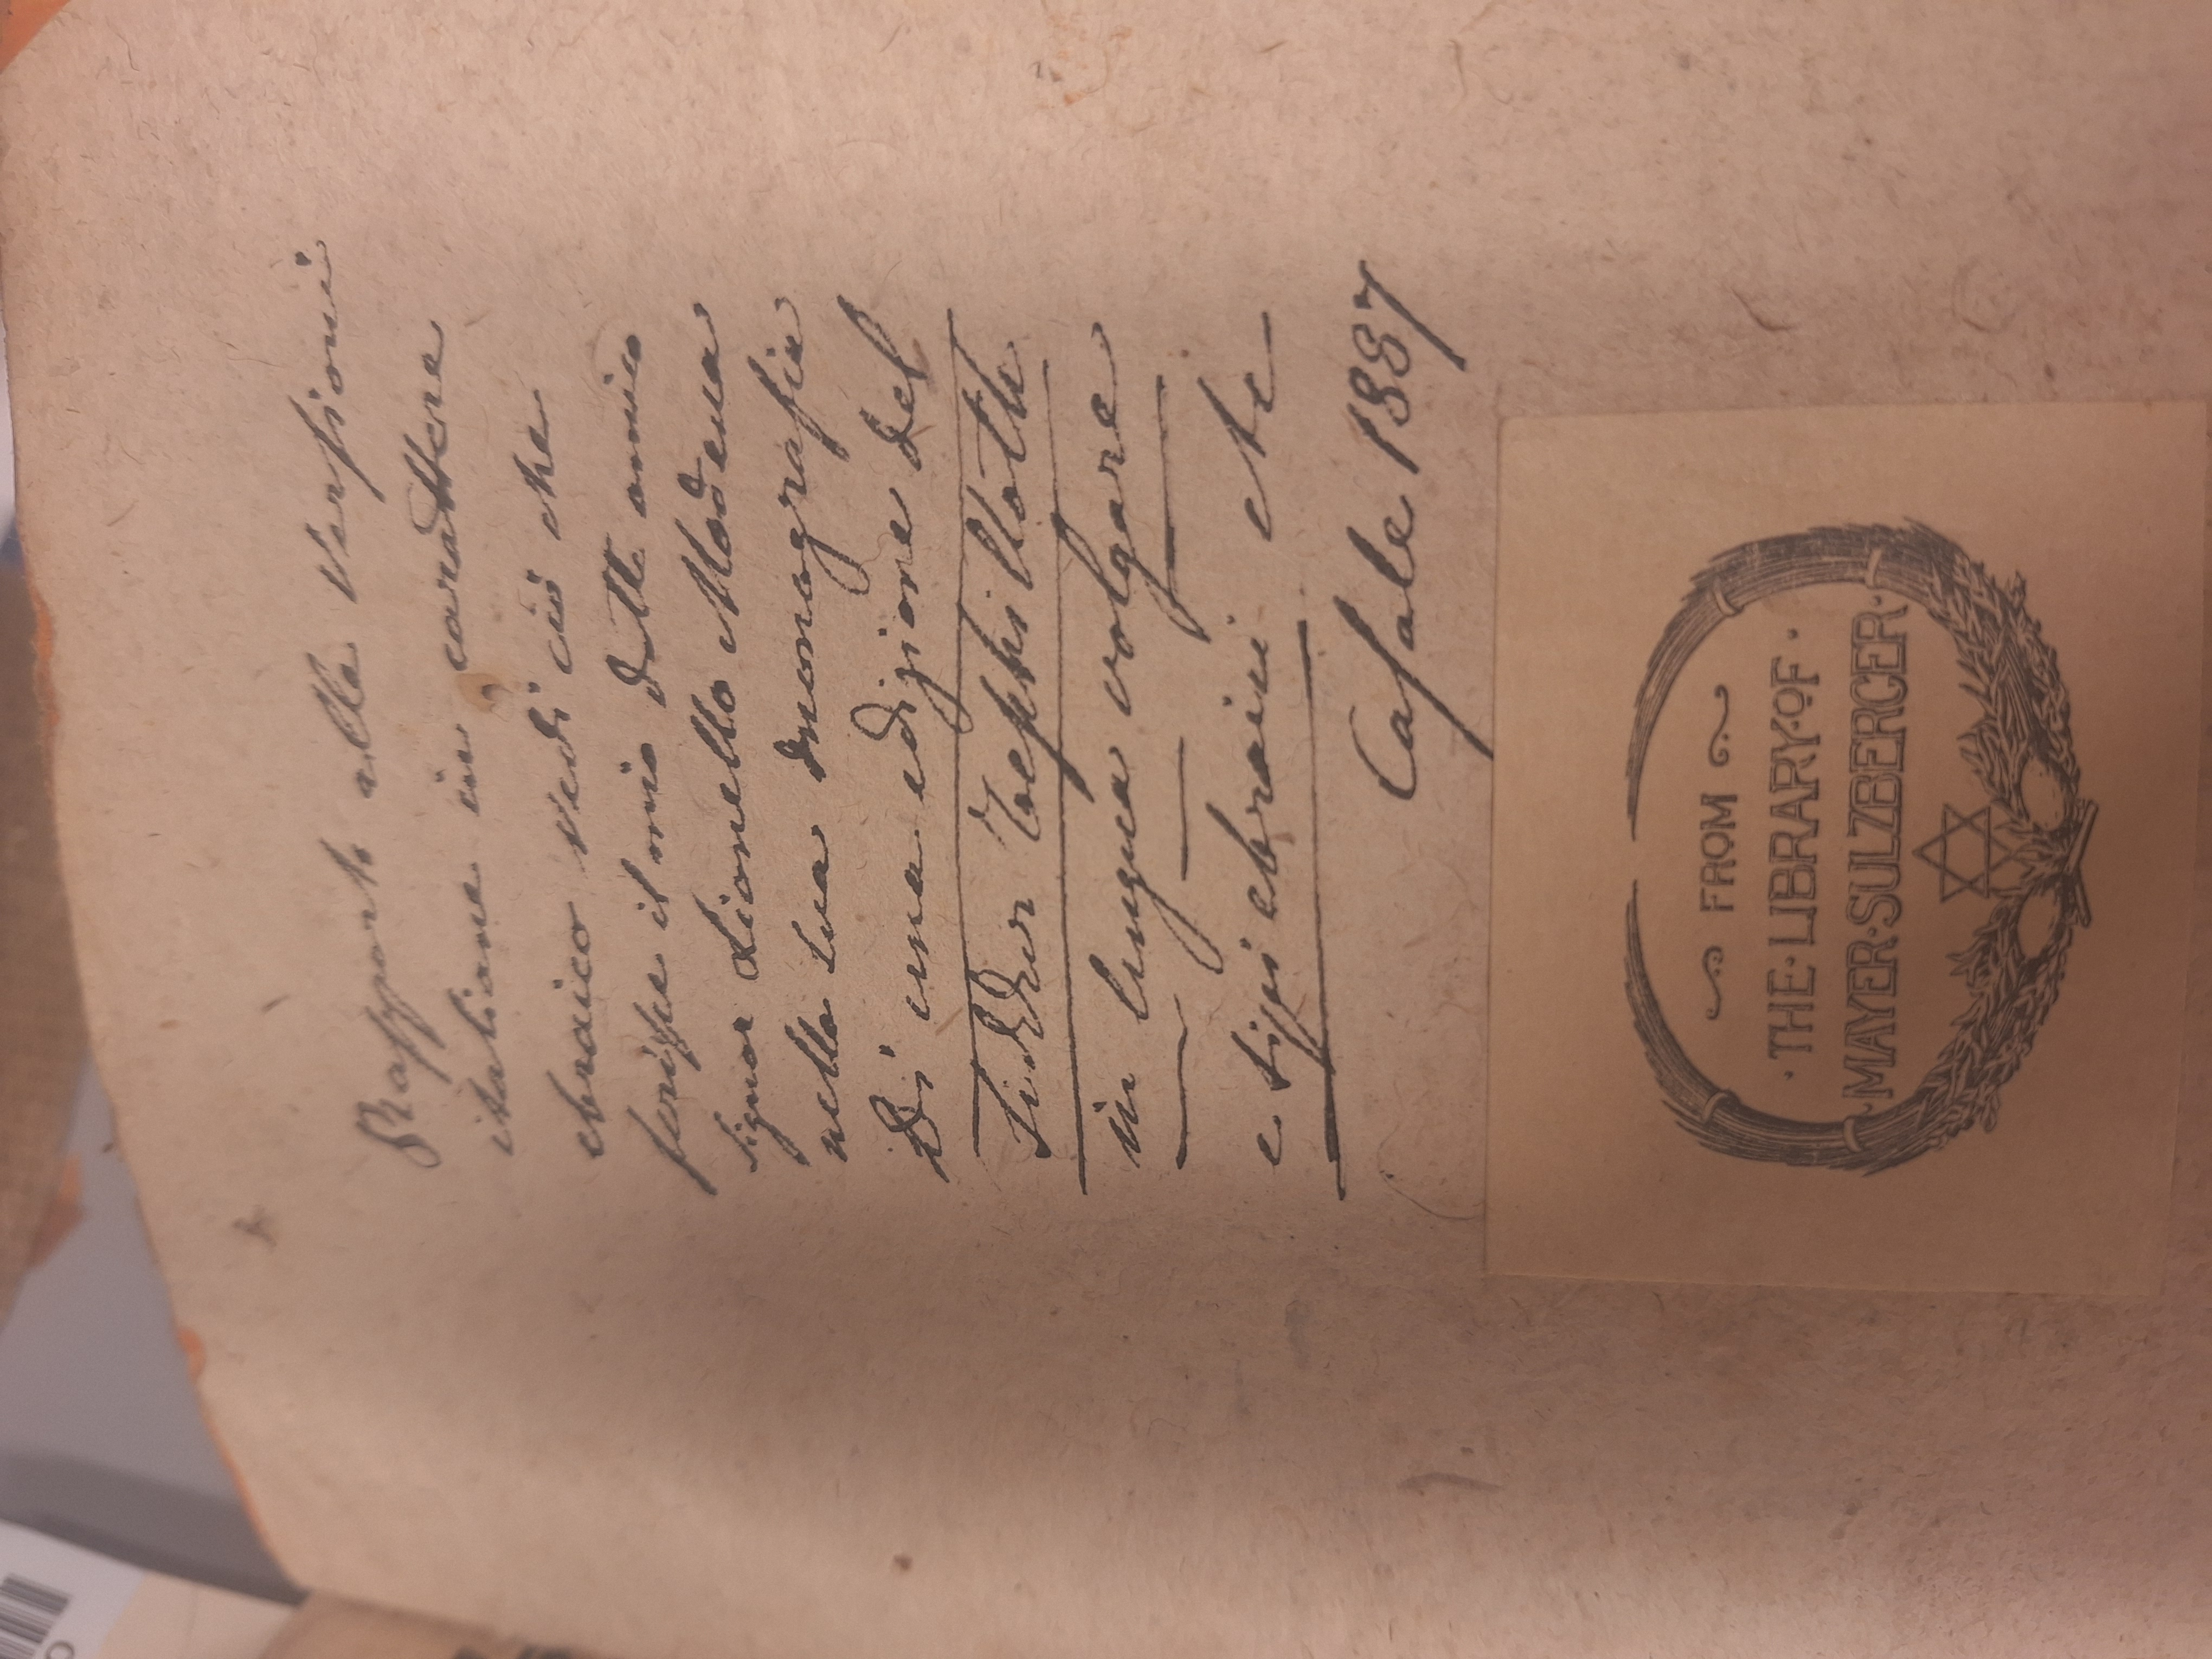 Rapporto alle versioni
italiane in carattere
ebraico vedi ciò che
scrisse il mio dotto amico
signor Lionello Modena
nella sua monografia
di una edizione del
Siddur Tephilloth
in lingua volgare
e tipi ebraici etc
Casale 1887
FROM
·THE·LIBRARY·OF·
·MAYER·SULZBERGER·